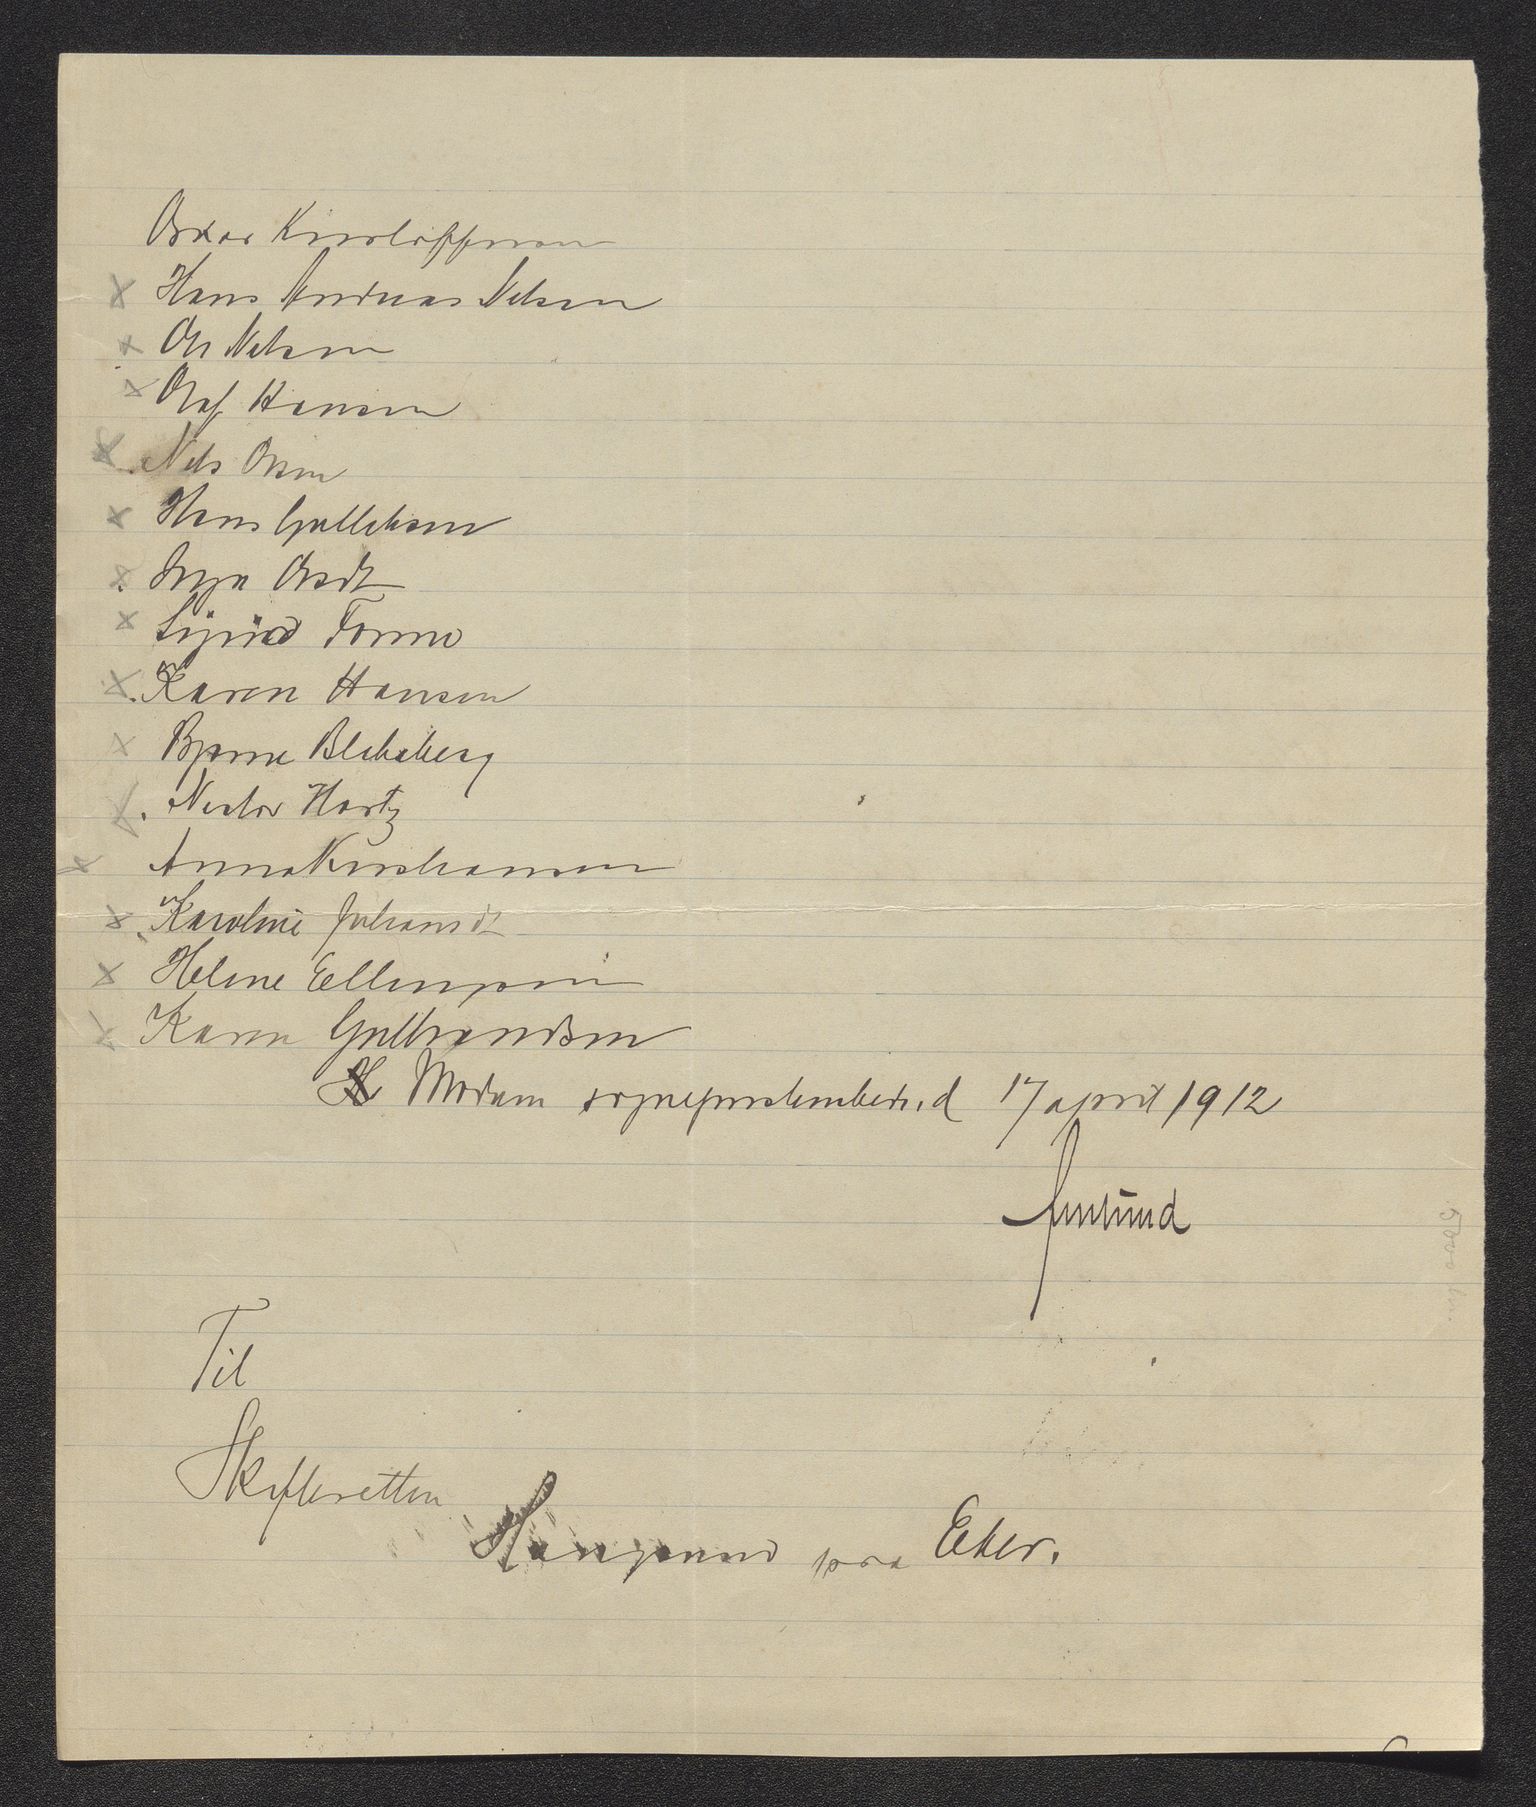 Oskar Kristoffersen
x Hans Andreas Nilsen
x Ole Nilsen
x Olaf Hansen
x Nils Olsen
x Hans Gulliksen
x Inga Olsdt
x Sigrid Formo
x Karen Hansen
x Bjarne Blektberg
x Nestor Hartz
x Anna Kristiansen
x Karoline Johansdt
x Helene Ellingsen
x Karen Gulbrandsen
Modum sogneprestembede, d 17 april 1912
Til
Skifteretten
Haugsund pra Eker.